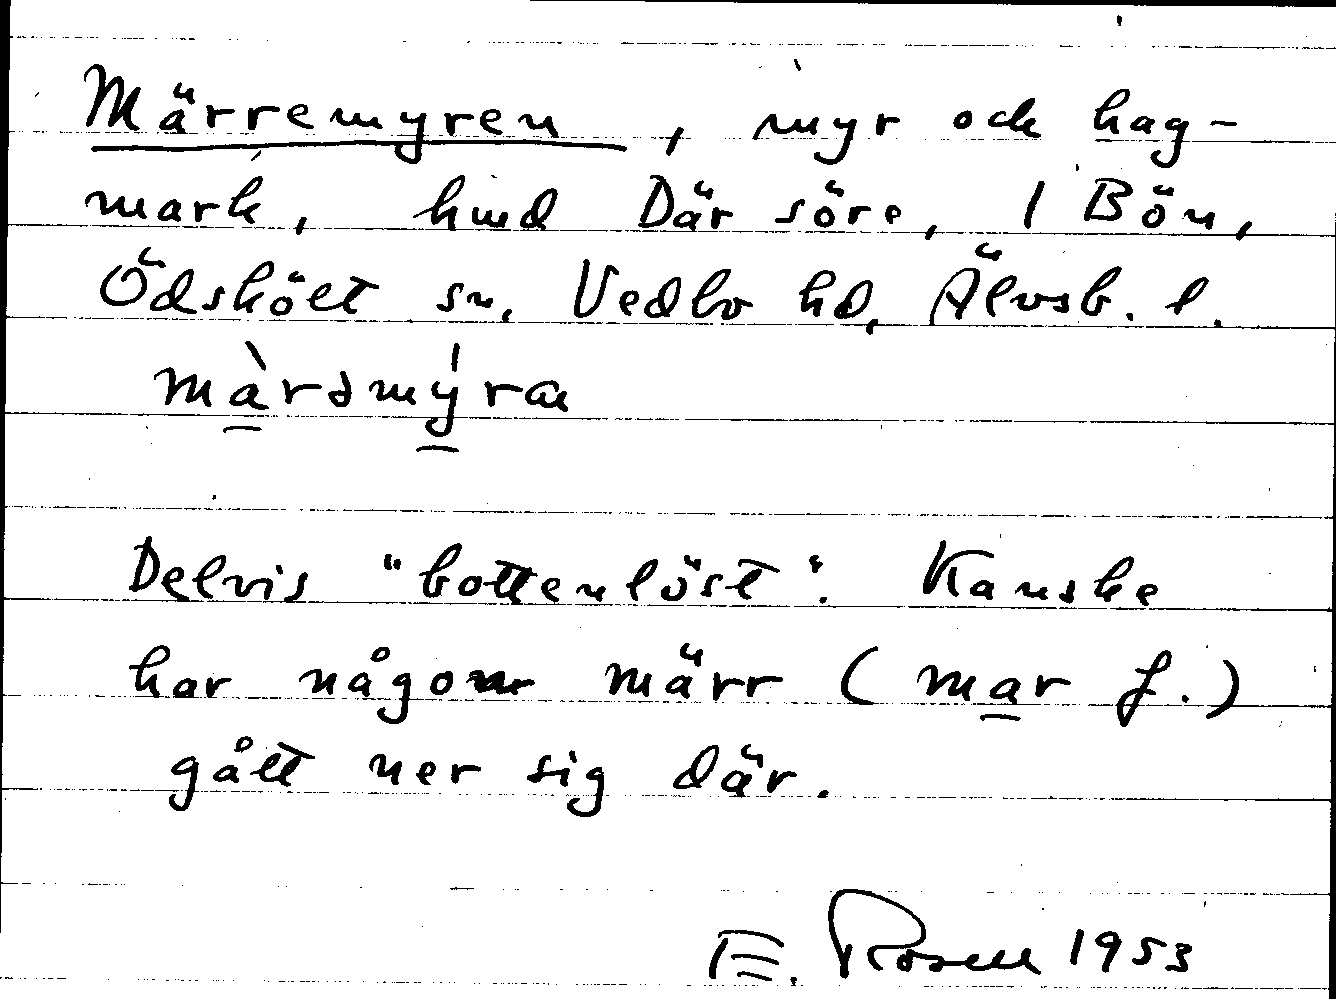 Märremyren, myr och hag-
mark, hmd Där söre, 1 Bön,
Ödskölt sn, Vedbo hd, Älvsb. l.
màrəmýra
Delvis "bottenlöst". Kanske
har någon märr (mar f.)
gått ner sig där.
E. Rosell 1953